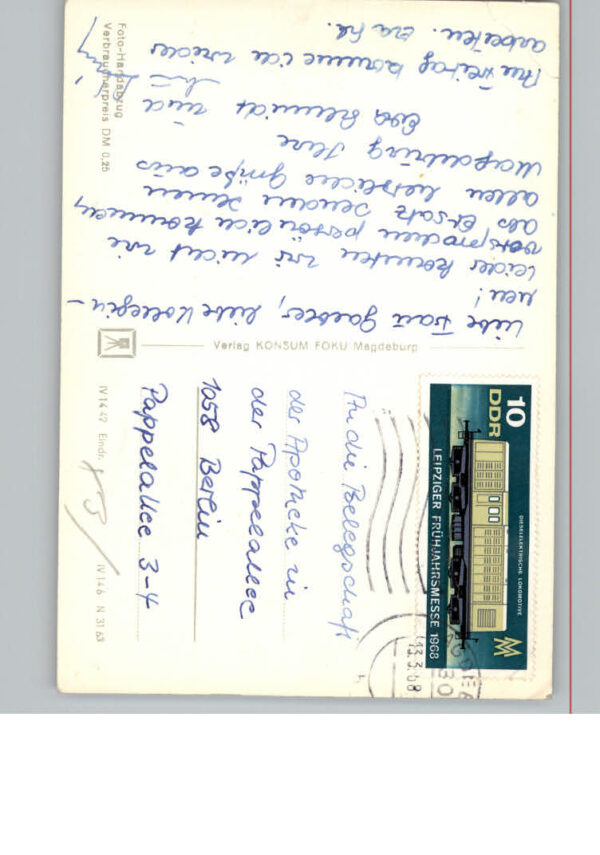 Liebe Frau Gaebler, liebe Kollegin-
nen!
Leider konnten wir nicht wie
versprochen persönlich kommen,
als Ersatz senden Ihnen
allen herzliche Grüße aus
Magdeburg Ihre
Schmidt und
Am Freitag komme ich wieder
arbeiten.
Foto-Handabzug
Verbraucherpreis DM 0,25
Verlag KONSUM FOKU Magdeburg
IV 14 47 Eindr. IV 14 6 N 31 63
An die Belegschaft
der Apotheke in
der Pappelallee
1058 Berlin
Pappelallee 3-4
10
DDR
DIESELELEKTRISCHE LOKOMOTIVE
LEIPZIGER FRÜHJAHRSMESSE 1968
MM
13.3.68